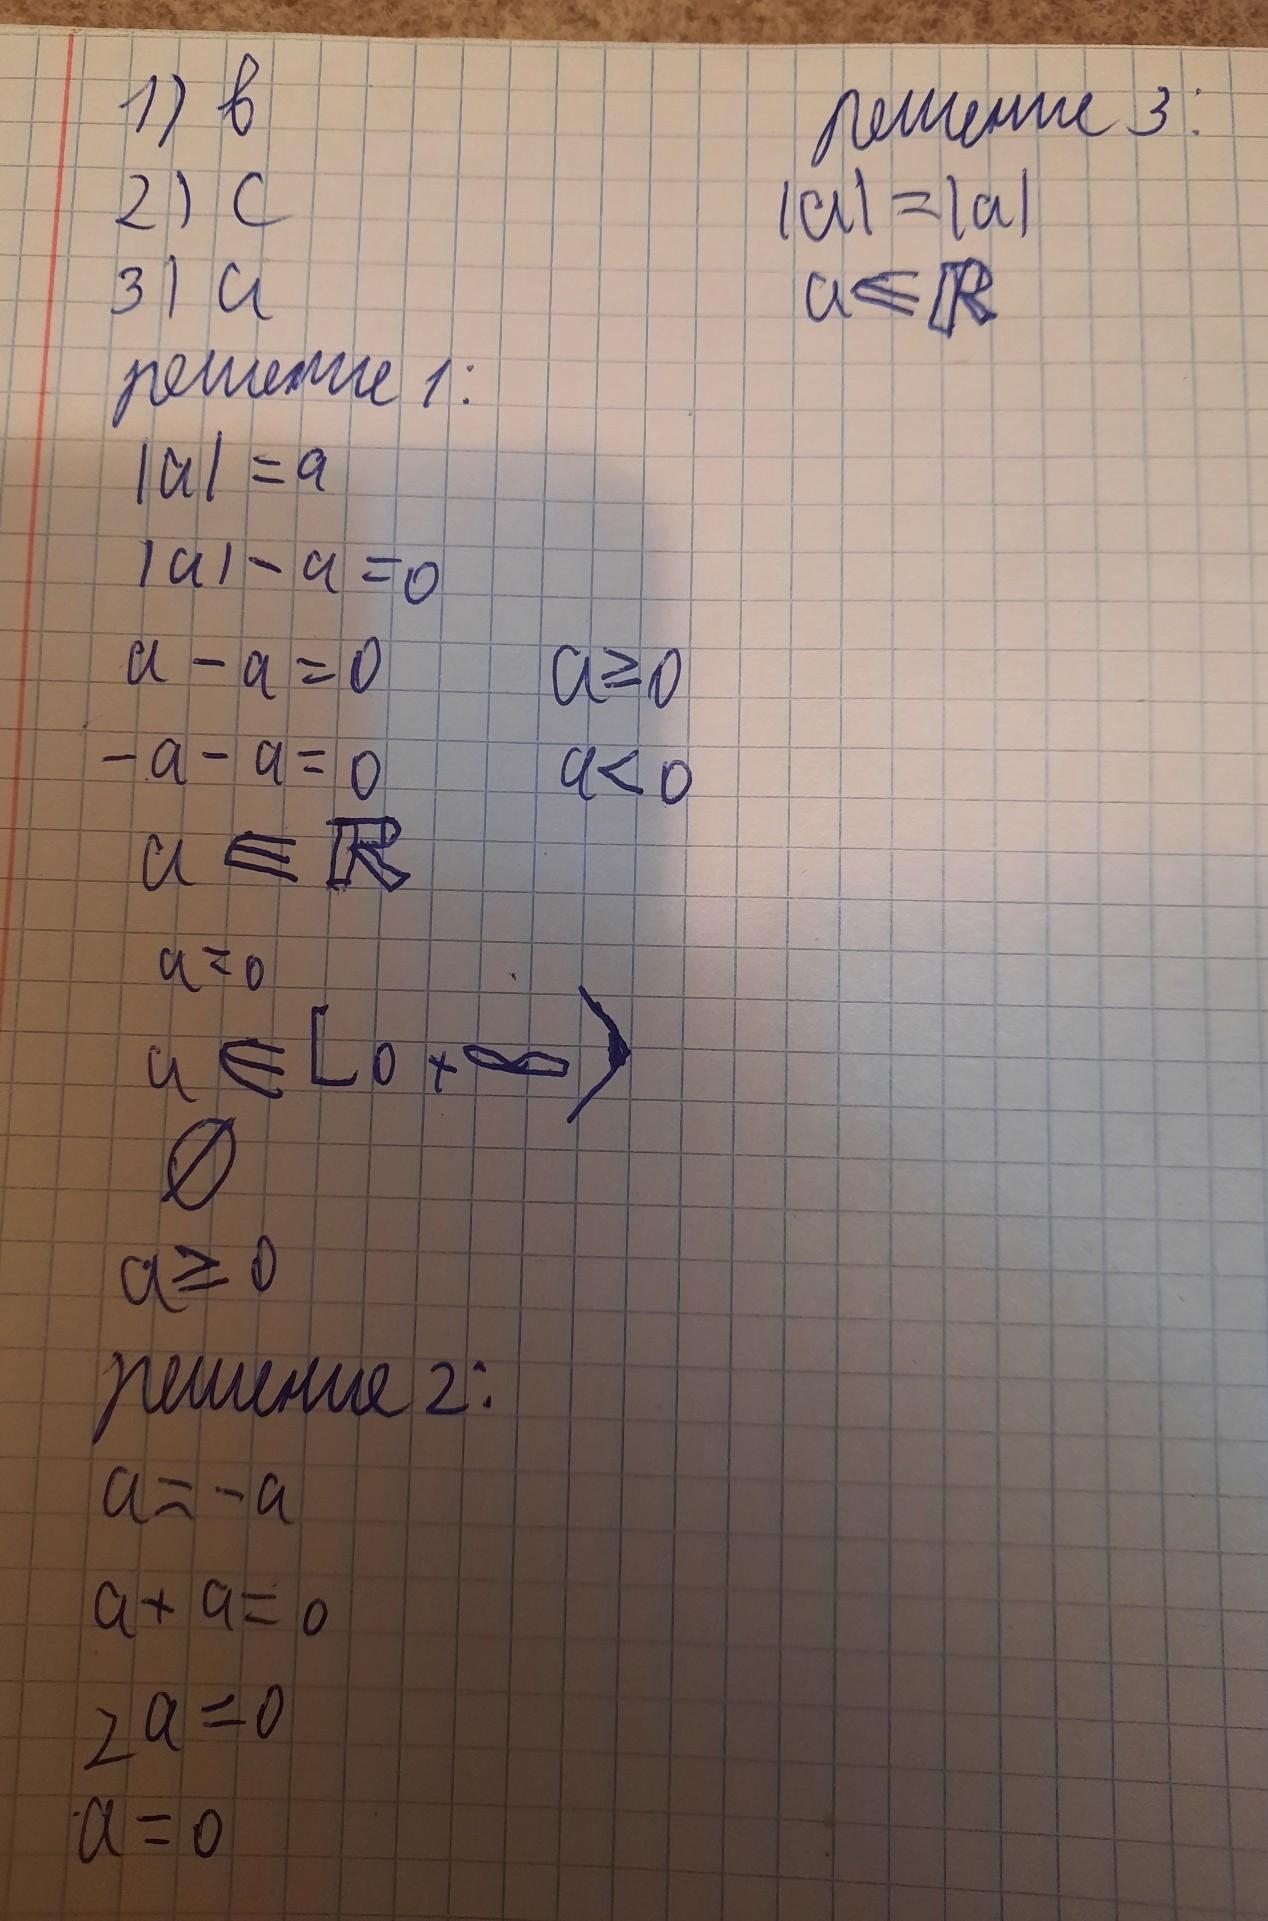 1) в
2) С
3) а
решение 1:
|a| = a
|a| - a = 0
a - a = 0 a ≥ 0
-a - a = 0 a < 0
a ∈ ℝ
a = 0
a ∈ [0 + ∞)
∅
a ≥ 0
решение 2:
a = -a
a + a = 0
2a = 0
a = 0
решение 3:
|a| = |a|
a ∈ ℝ